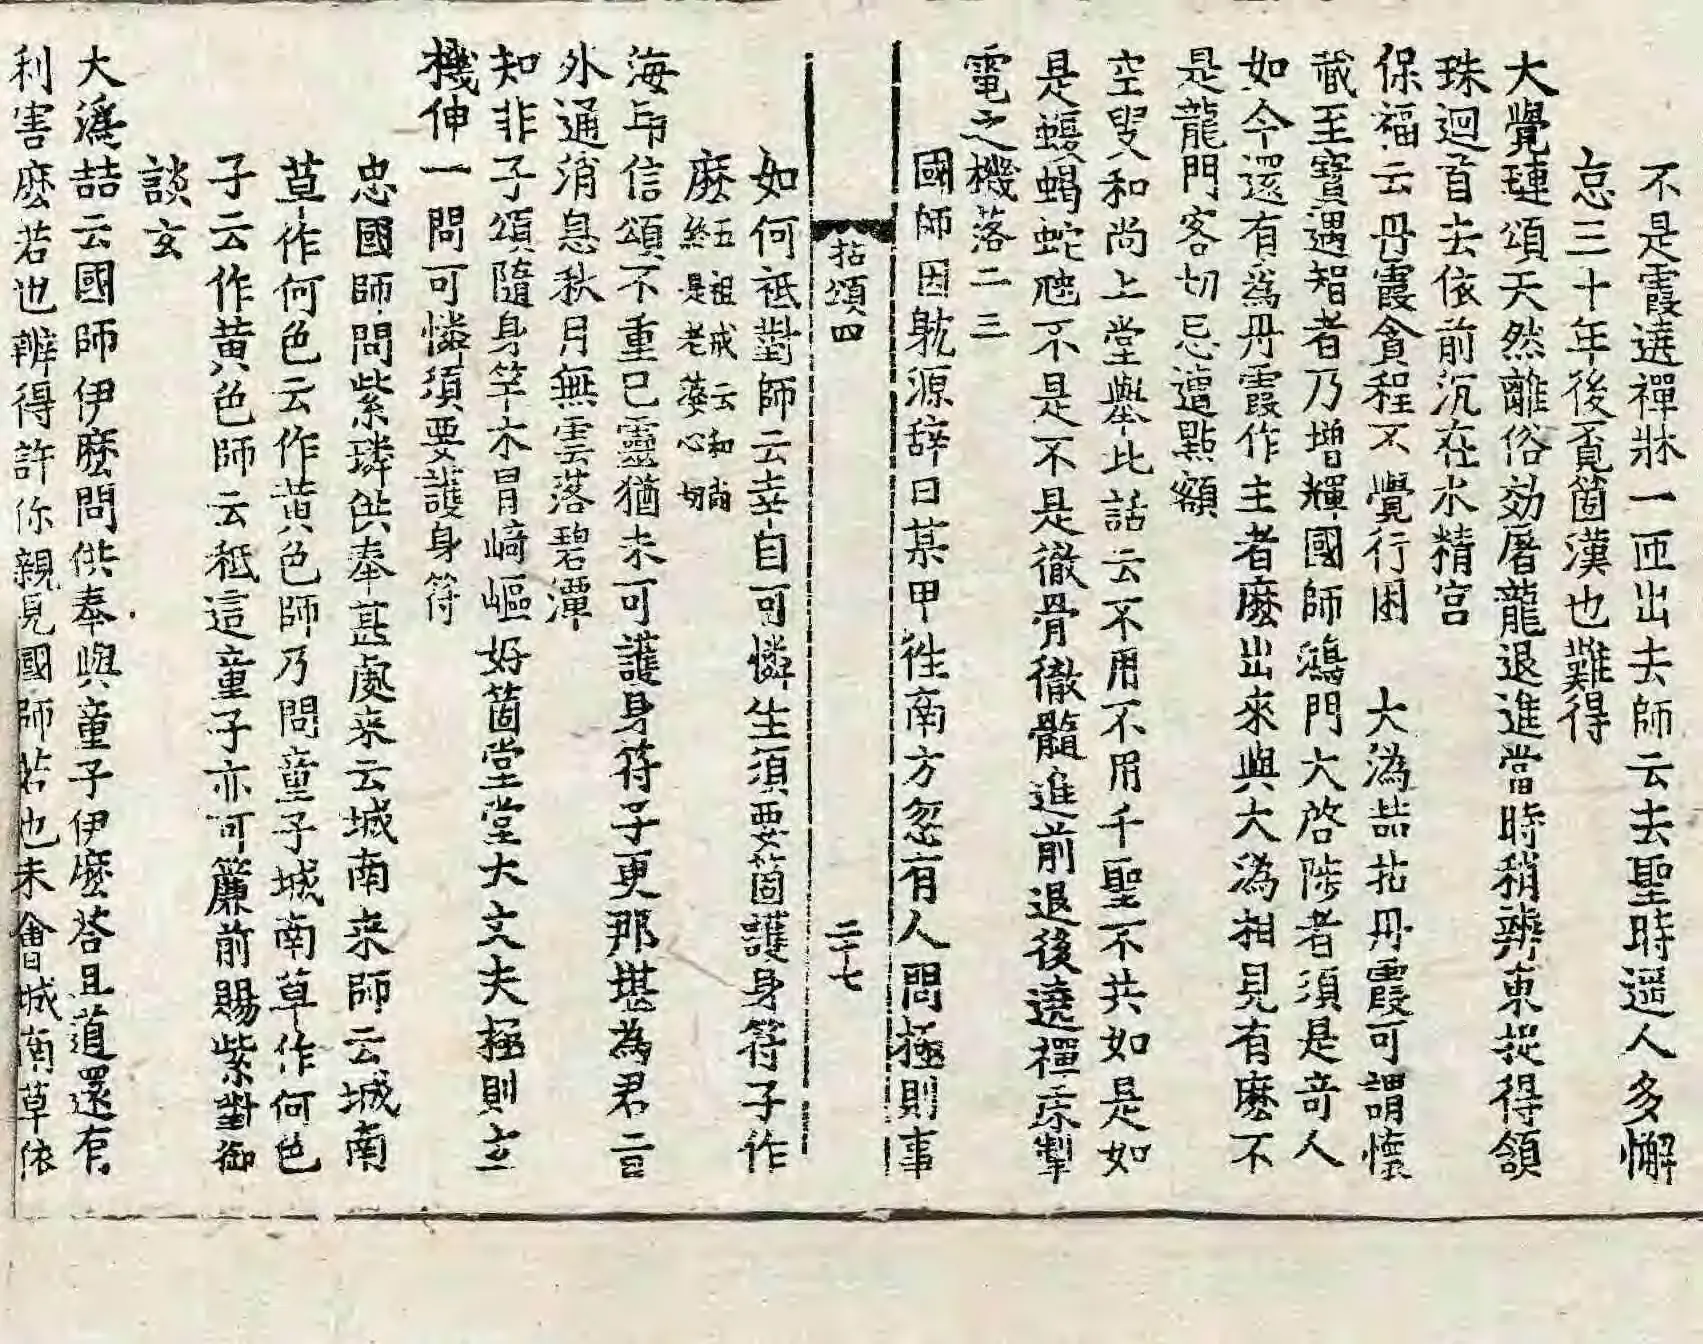 不是霞遶禪牀一匝出去師云去聖時遥人多懈
怠三十年後覔箇漢也難得
大覺璉頌天然離俗効屠龍退進當時稍辨東捉得頷
珠迴首去依前沉在水精宫
保福云丹霞貪程不覺行困　大溈喆拈丹霞可謂懷
藏至寶遇智者乃增輝國師鴻門大啓陟者須是竒人
如今還有爲丹霞作主者麽出來與大溈相見有麽不
是龍門客切忌遭點額
空叟和尚上堂舉此話云不用不用千聖不共如是如
是蝮蝎蛇虺不是不是徹骨徹髓進前退後遶禪床掣
電之機落二三
國師因躭源辞曰某甲徃南方忽有人問極則事
拈頌四　二十七
如何祗對師云幸自可憐生須要箇護身符子作
麽五祖戒云和尚終是老婆心切
海印信頌不重己靈猶未可護身符子更那堪為君言
外通消息秋月無雲落碧潭
知非子頌隨身竿木冐﨑嶇好箇堂堂大丈夫極則立
機伸一問可憐須要護身符
忠國師問紫璘供奉甚處来云城南来師云城南
草作何色云作黄色師乃問童子城南草作何色
子云作黄色師云秪這童子亦可簾前賜紫對御
談玄
大溈喆云國師伊麽問供奉與童子伊麽荅且道還有
利害麽若也辨得許你親見國師若也未會城南草依